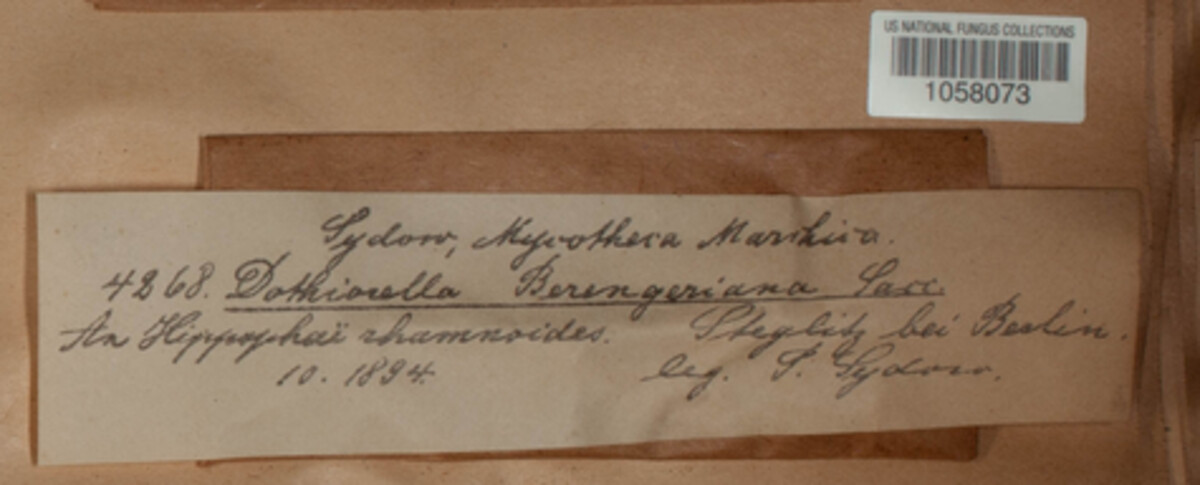 US NATIONAL FUNGUS COLLECTIONS
1058073
Sydow, Mycotheca Marchica.
4268. Dothiorella Berengeriana Sacc.
An Hippophaë rhamnoides. Steglitz bei Berlin.
10. 1894. leg. P. Sydow.